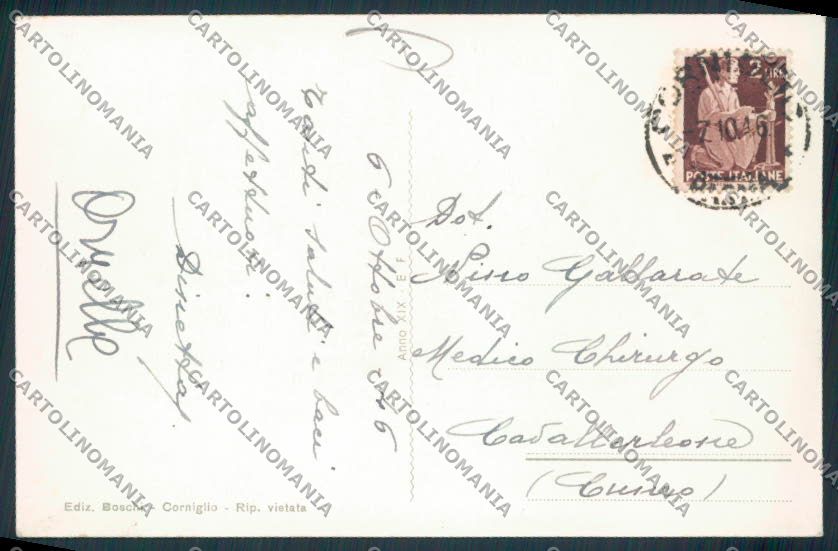 6 Ottobre 46
Tanti saluti e baci
affettuosi.
Ornella
Dot.
Nino Gallarate
Medico Chirurgo
Cavallerleone
(Cuneo)
Anno XIX E F
Ediz. Boschi - Corniglio - Rip. vietata
2 LIRE
POSTE ITALIANE
-7.10.46
CARTOLINOMANIA